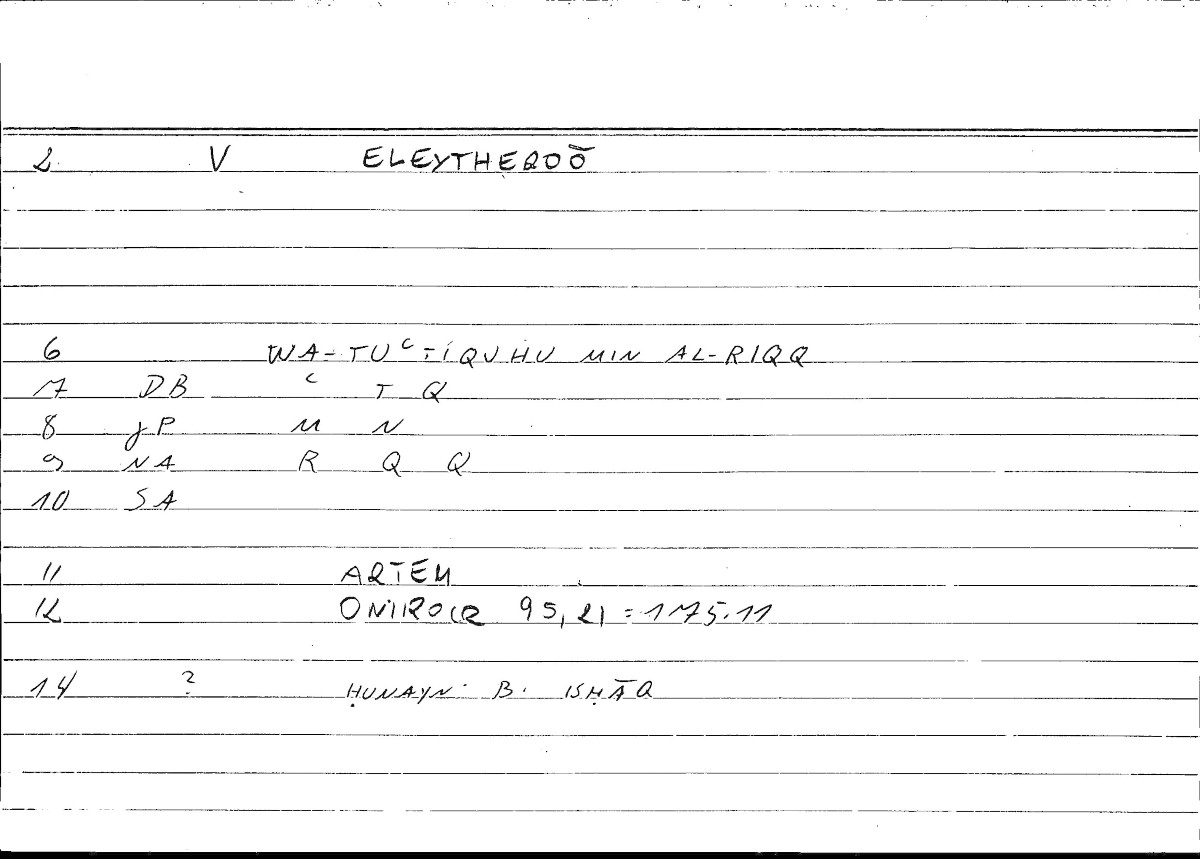 2 V ELEYTHEROŌ
6 WA-TUᶜTIQUHU MIN AL-RIQQ
7 DB ᶜ T Q
8 JP M N
9 NA R Q Q
10 SA
11 ARTEM
12 ONIROCR 95,21 = 175.11
14 ? ḤUNAYN B. ISḤĀQ